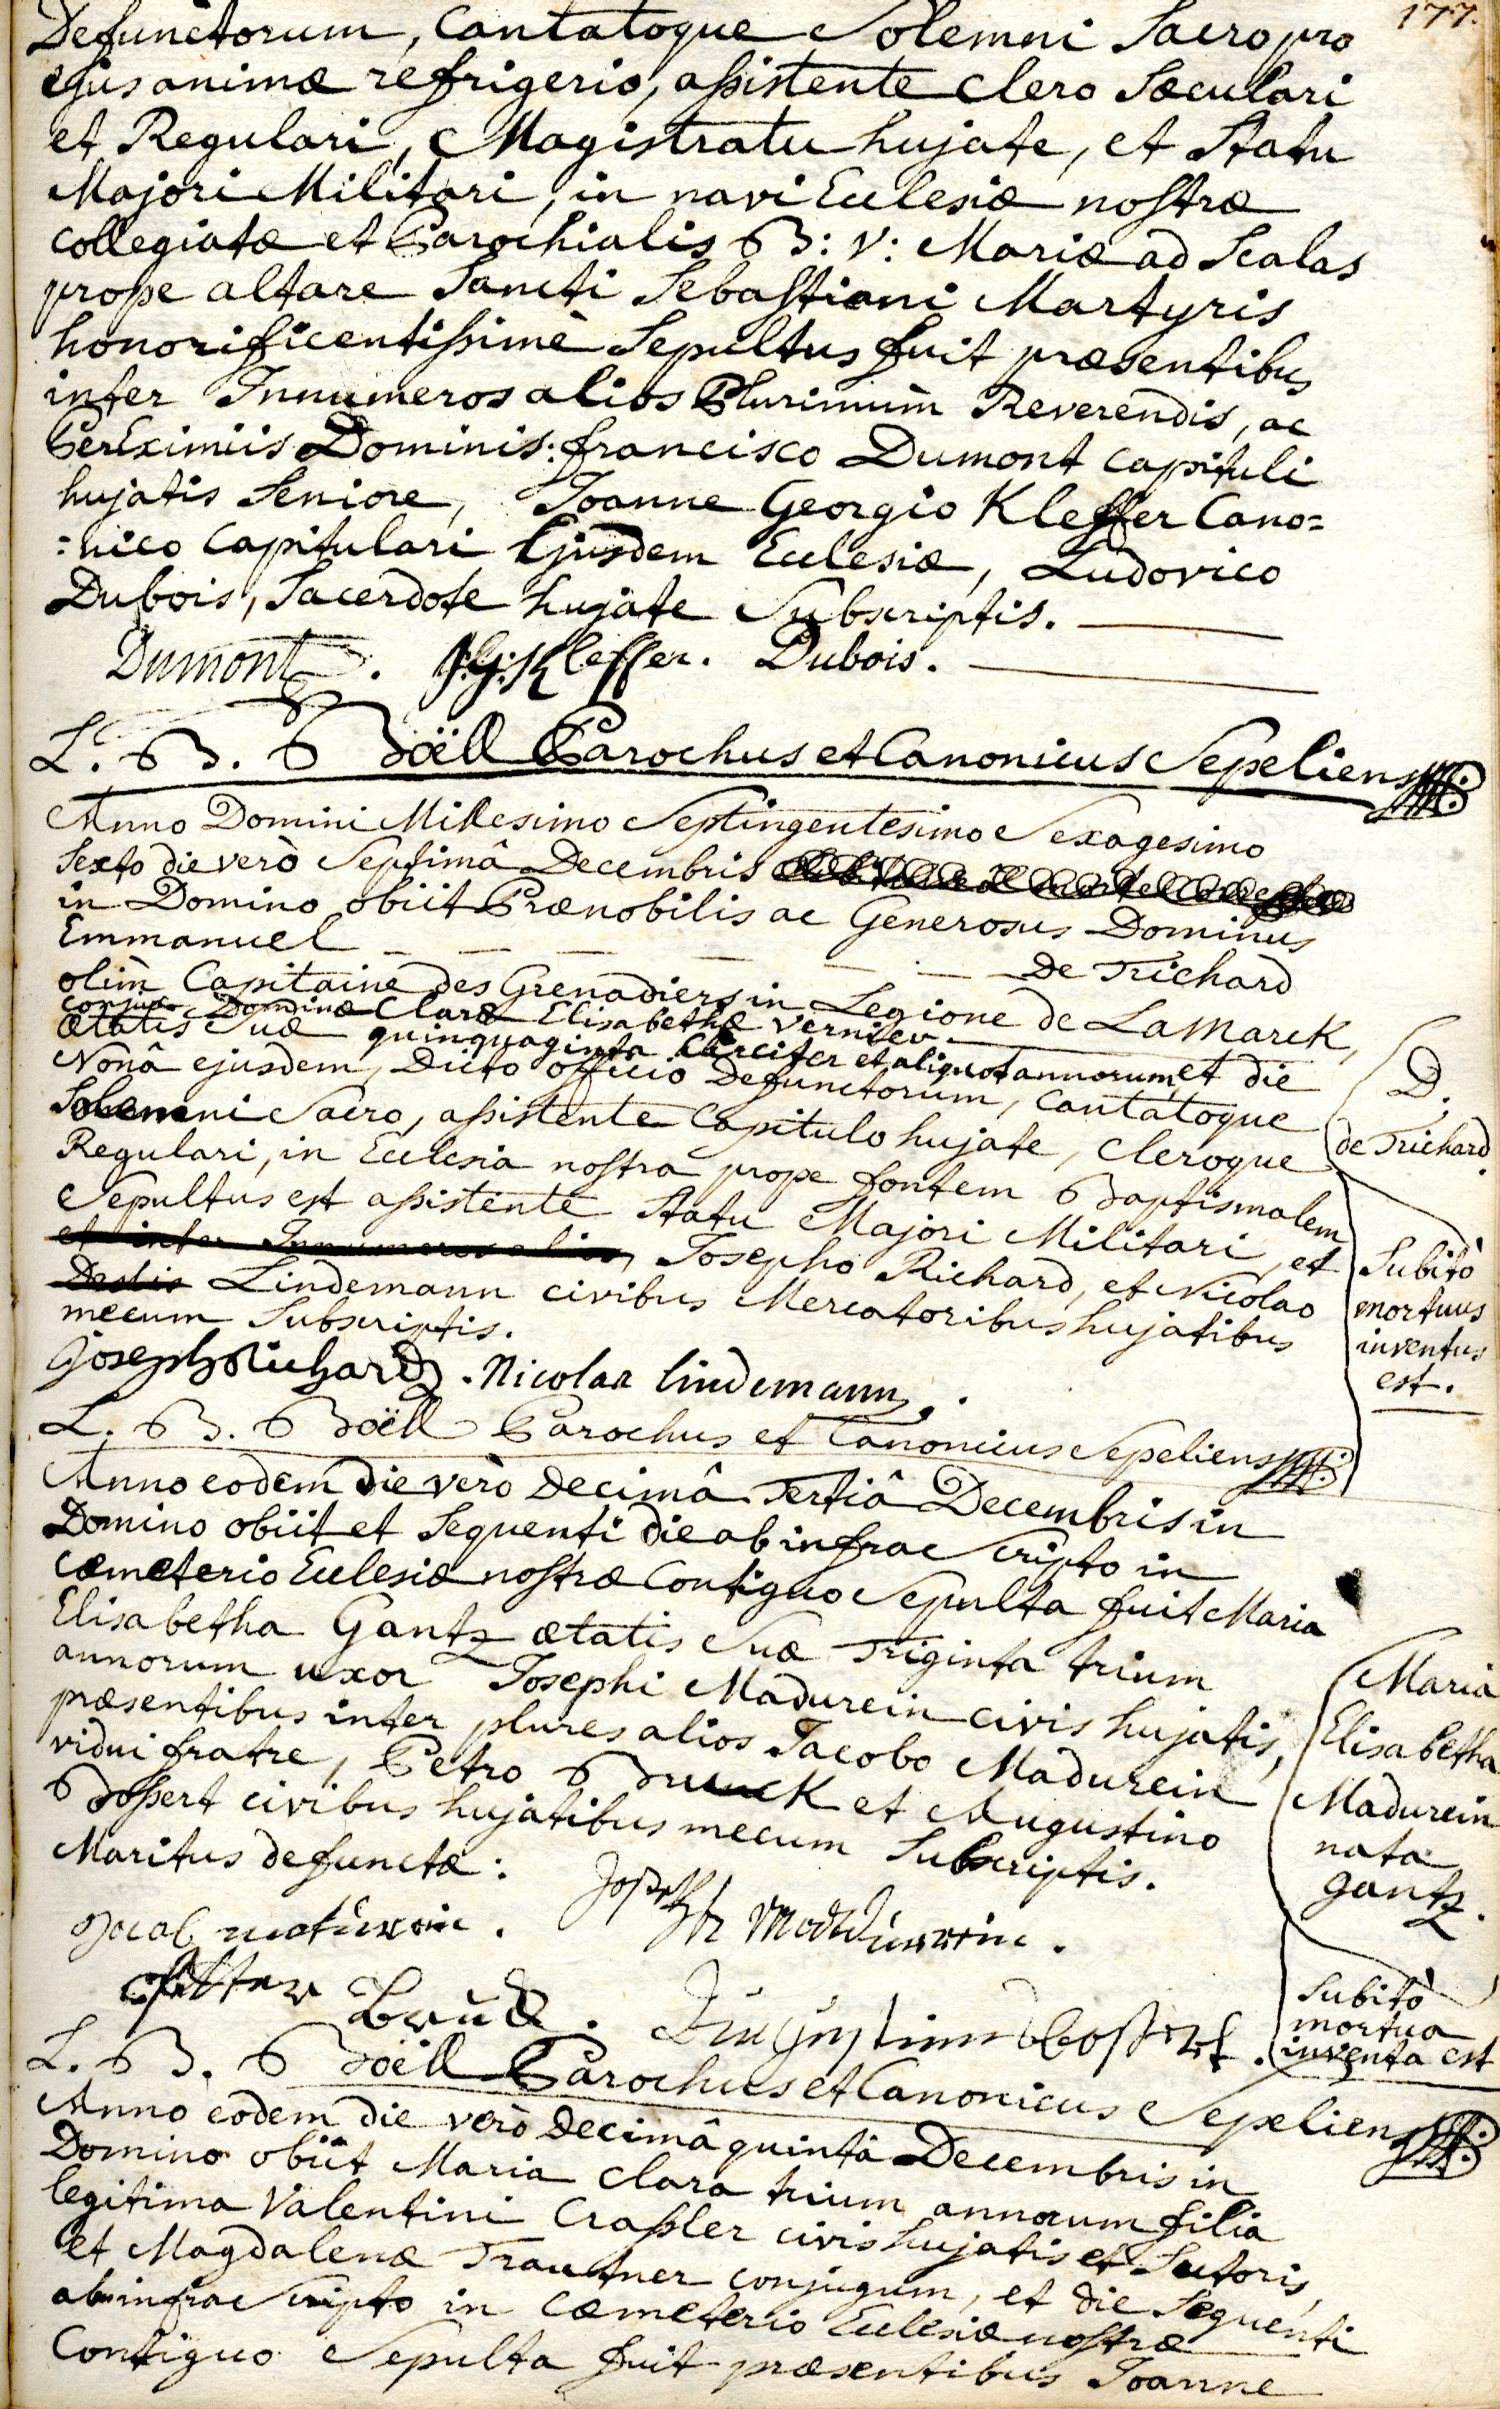 177.
Defunctorum, Cantatoque Solemni Sacro pro
ejus animæ refrigerio, assistente Clero Sæculari
et Regulari, Magistratu hujate, et Statu
Majori Militari, in navi Ecclesiæ nostræ
Collegiatæ et Parochialis B: V: Mariæ ad Scalas
prope altare Sancti Sebastiani Martyris
honorificentissimè Sepultus fuit præsentibus
inter Innumeros alios Plurimùm Reverendis, ac
PerEximiis Dominis: francisco Dumont Capituli
hujatis Seniore, Joanne Georgio Kleffer Cano=
=nico Capitulari Ejusdem Ecclesiæ, Ludovico
Dubois, Sacerdote hujate Subscriptis.
Dumont. J.G: Kleffer. Dubois.
L. B. Boëll Parochus et Canonicus Sepeliens
Anno Domini Millesimo Septingentesimo Sexagesimo
Sexto die verò Septimâ Decembris
in Domino obiit Prænobilis ac Generosus Dominus
Emmanuel De Trichard
olim Capitaine des Grenadiers in Legione de LaMarck,
conjux Dominæ Claræ Elisabethæ Vernier
ætatis suæ quinquaginta Circiter et aliquot annorum, et die
Nonâ ejusdem, Dicto officio Defunctorum, Cantatoque
Solemni Sacro, assistente Capitulo hujate, Cleroque
Regulari, in Ecclesia nostra prope fontem Baptismalem
Sepultus est assistente Statu Majori Militari, et
et inter Innumeros alios, Josepho Richard, et Nicolao
Destis Lindemann civibus Mercatoribus hujatibus
mecum Subscriptis.
D.
de Trichard.
Subitò
mortuus
inventus
est.
Joseph Richard. Nicolaa lindemann.
L. B. Boëll Parochus et Canonicus Sepeliens
Anno eodem die verò Decimâ Tertiâ Decembris in
Domino obiit et Sequenti die ab infrascripto in
cæmeterio Ecclesiæ nostræ Contiguo Sepulta fuit Maria
Elisabetha Gantz ætatis suæ Triginta trium
annorum uxor Josephi Madurein civis hujatis,
præsentibus inter plures alios Jacobo Madurein
vidui fratre, Petro Bruck et Augustino
Bossert civibus hujatibus mecum Subscriptis.
Maritus defunctæ:
Maria
Elisabetha
Madurein
nata
Gantz.
Subitò
mortua
inventa est
Joseph Madurein.
Jacob maturein.
Petter Bruck. Augustinus Bossert.
L. B. Boëll Parochus et Canonicus Sepeliens
Anno eodem die verò Decimâ quintâ Decembris in
Domino obiit Maria Clara trium annorum filia
legitima Valentini Crassler civis hujatis et Sutoris,
et Magdalenæ Trautner conjugum, et die Sequenti
ab infrascripto in Cæmeterio Ecclesiæ nostræ
Contiguo Sepulta fuit præsentibus Joanne